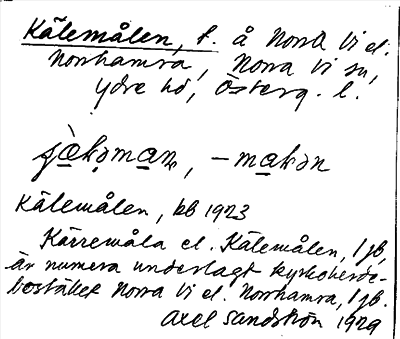 Kälemålen, f. å Norra Vi el.
Norrhamra, Norra Vi sn,
Ydre hd, Österg. l.
Kälemålen, kb 1923
Kärremåla el. Kälemålen, 1 jb,
är numera underlagt kyrkoherde-
bostället Norra Vi el. Norrhamra, 1 jb.
Axel Sandström 1929